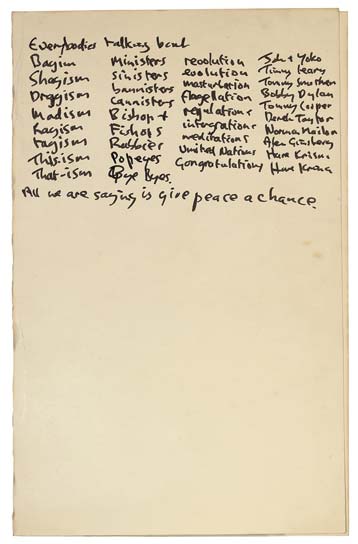 Everybodies talking bout
Bagism Ministers revolution John + Yoko
Shagism sinisters evolution Timmy Leary
Draggism bannisters masturbation Tommy Smothers
Madism Cannisters flagellation Bobby Dylan
Ragism Bishops regulations Tommy Cooper
Tagism Fishops integrations Derek Taylor
This-ism Rabbies meditations Norman Mailer
That-ism Popeyes United Nations Alen Ginsberg
Bye Byes. Congratulations Hare Krisna
Hare Krsna
All we are saying is give peace a chance.